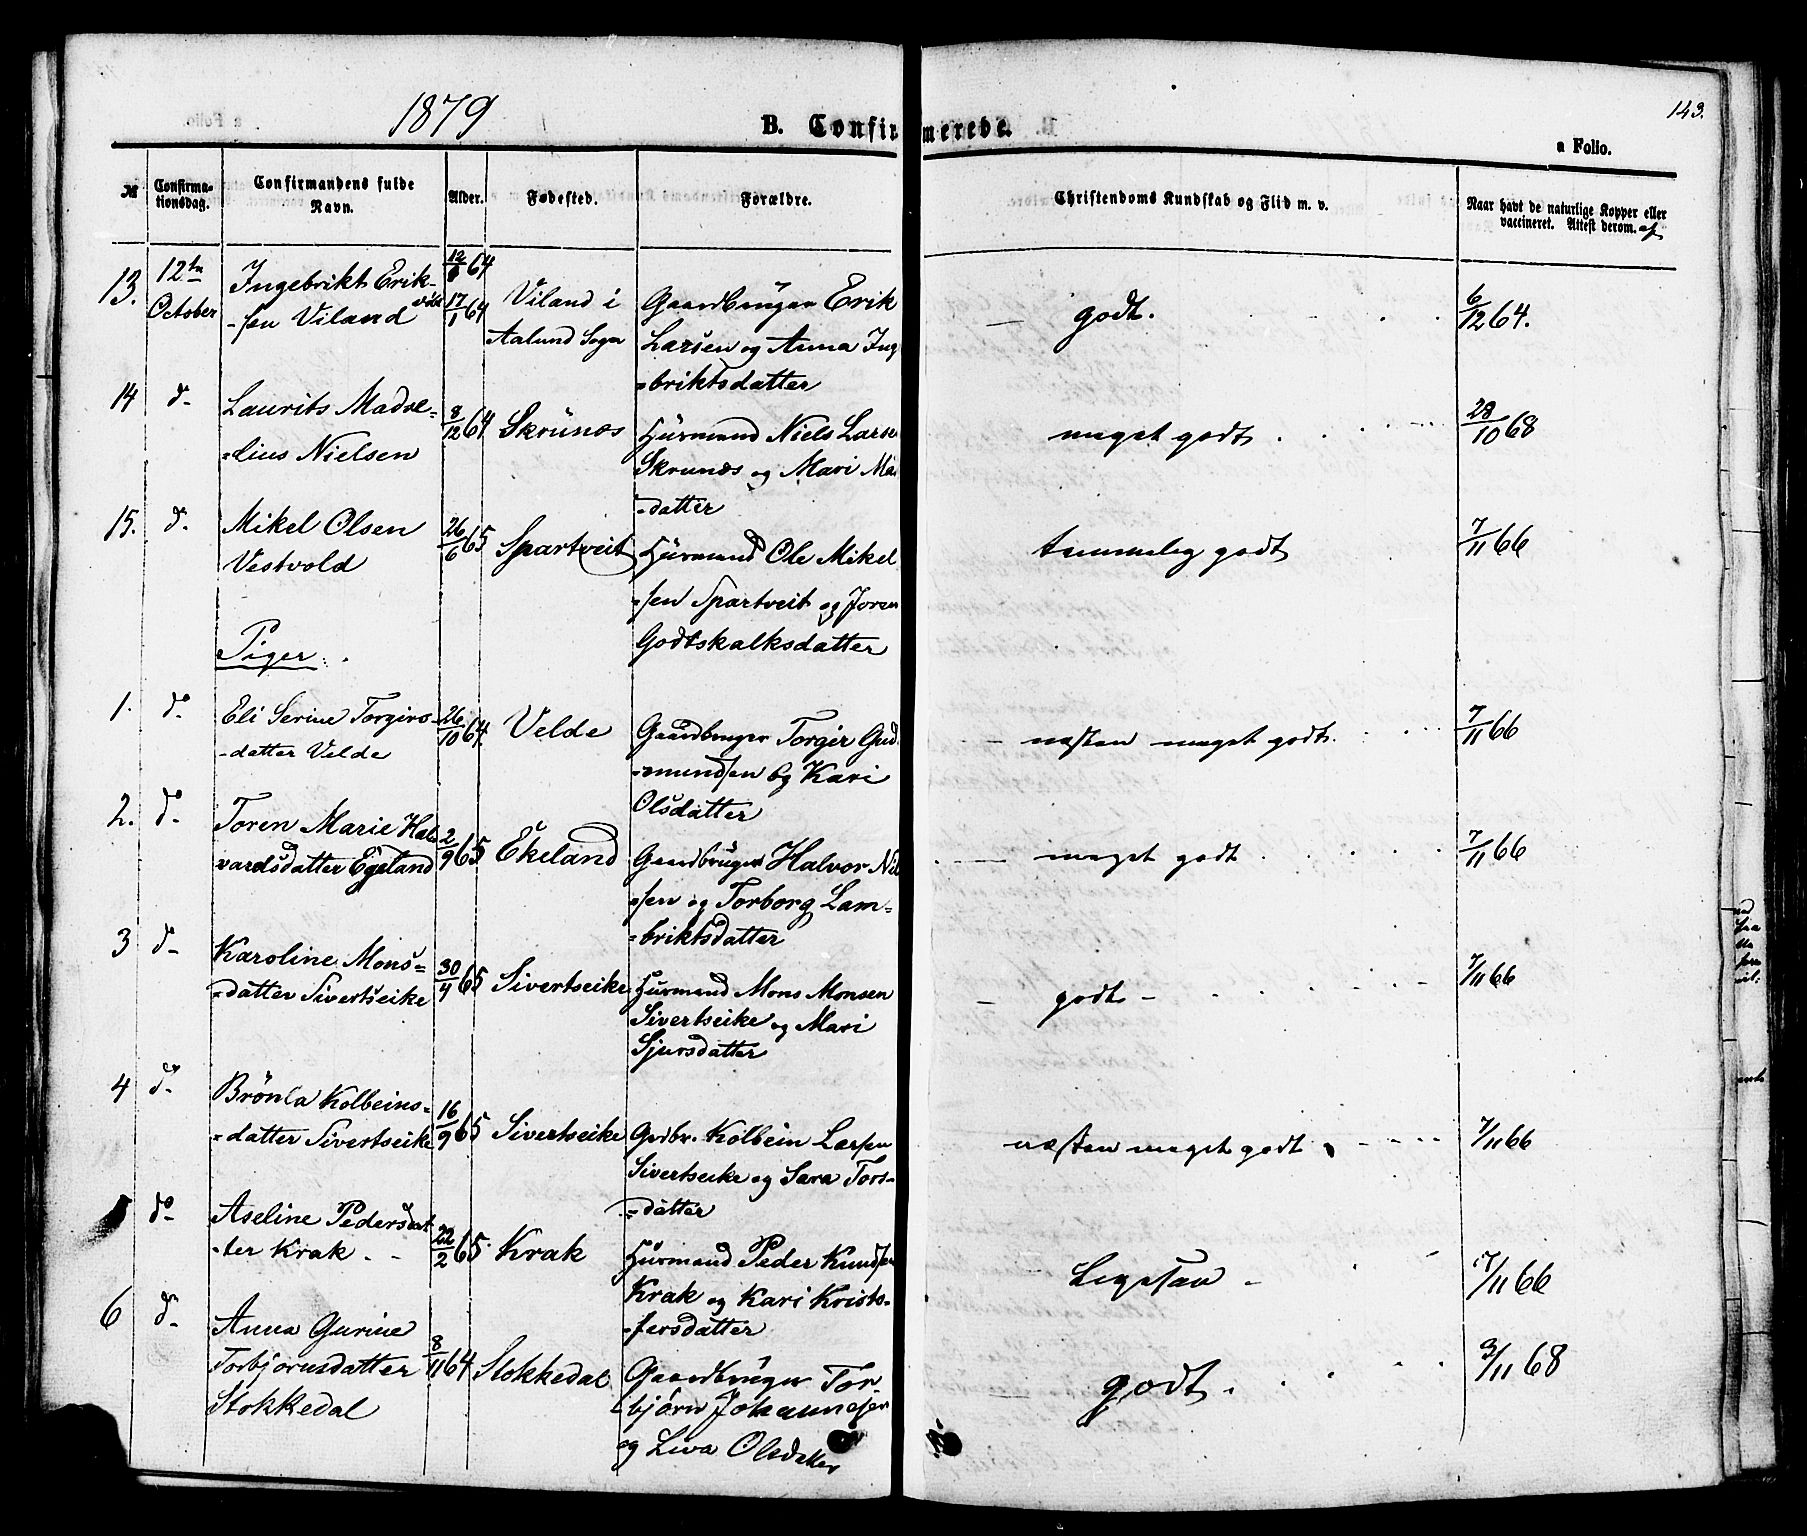 1879
B. Confirmerede.
143.
a Folio.
№
Confirma-
tionsdag.
Confirmandens fulde
Navn.
Alder.
Fødested.
Forældre.
Christendoms Kundskab og Flid m. v.
Naar havt de naturlige Kopper eller
vaccineret. Attest derom. af
13. 12te October
Ingebrikt Erik-
-sen Viland
12/8 64
17/1 64
Viland i
Aalund Sogn
Gaardbruger Erik
Larsen og Anna Ing
=briktsdatter
godt.
6/12 64.
14 d-
Laurits Madse-
=lius Nielsen
8/12 64
Skrunes
Husmand Niels Larse
Skrunes og Mari
=datter
meget godt.
28/10 68
15. d-
Mikel Olsen
Vestvold
26/6 65
Spartveit
Husmand Ole Mikel
=sen Spartveit og Joren
Godtskalksdatter
temmelig godt
7/11 66
Piger.
1. d-
Eli Serine Torgirs-
-datter Velde
26/10 64.
Velde
Gaardbruger Torgir Gud
=mundsen og Kari
Olsdatter
næsten meget godt.
7/11 66
2. d-
Toren Marie Hal
vardsdatter Egeland
2/9 65
Ekeland
Gaardbruger Halvor Nil
=sen og Torborg Lam=
=briktsdatter
meget godt.
7/11 66
3 d-
Karoline Mons=
=datter Sivertseike
30/4 65
Sivertseike
Husmand Mons Monsen
Sivertseike og Mari
Sjursdatter
godt -
7/11 66
4 d-
Brønla Kolbeins=
=datter Sivertseike
16/9 65
Sivertseike
Grdbr. Kolbein Larsen
Sivertseike og Sara Tors-
=datter
næsten meget godt.
7/11 66
5 d-
Aseline Pedersdat
-ter Krak.
22/2 65
Krak
Husmand Peder Knudsen
Krak og Kari Krists-
-fersdatter
Ligesaa -
7/11 66
6 d-
Anna Gurine
Torbjørnsdatter
Stokkedal
8/11 64
Stokkedal
Gaardbruger Tor-
=bjørn Johannesen
og Liva Olsdatter
godt.
3/11 68